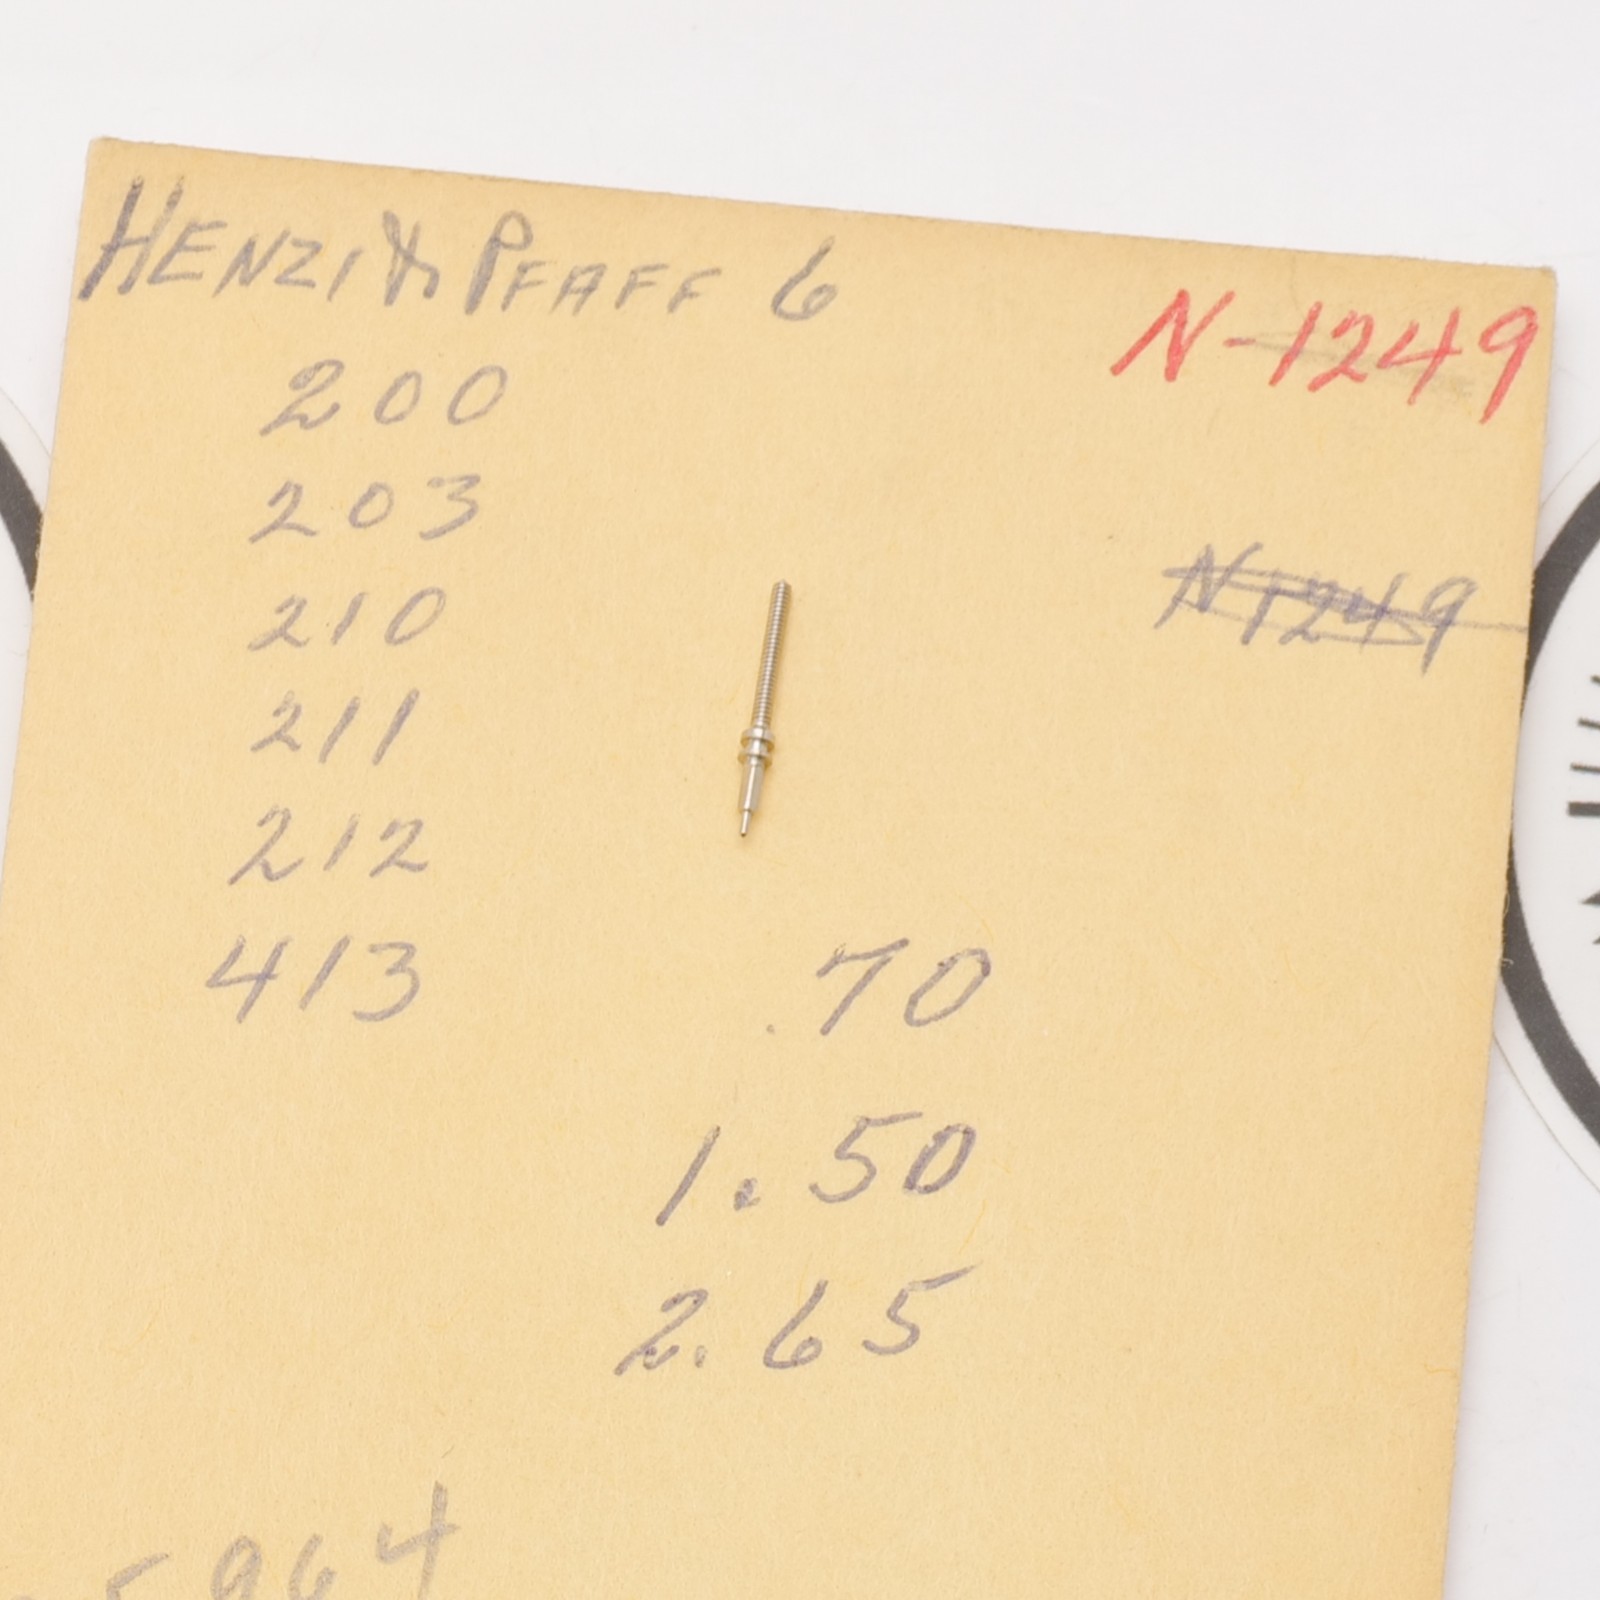 HENZI & PFAFF 6
N-1249
200
203
N1249
210
211
212
413
.70
1.50
2.65
5964